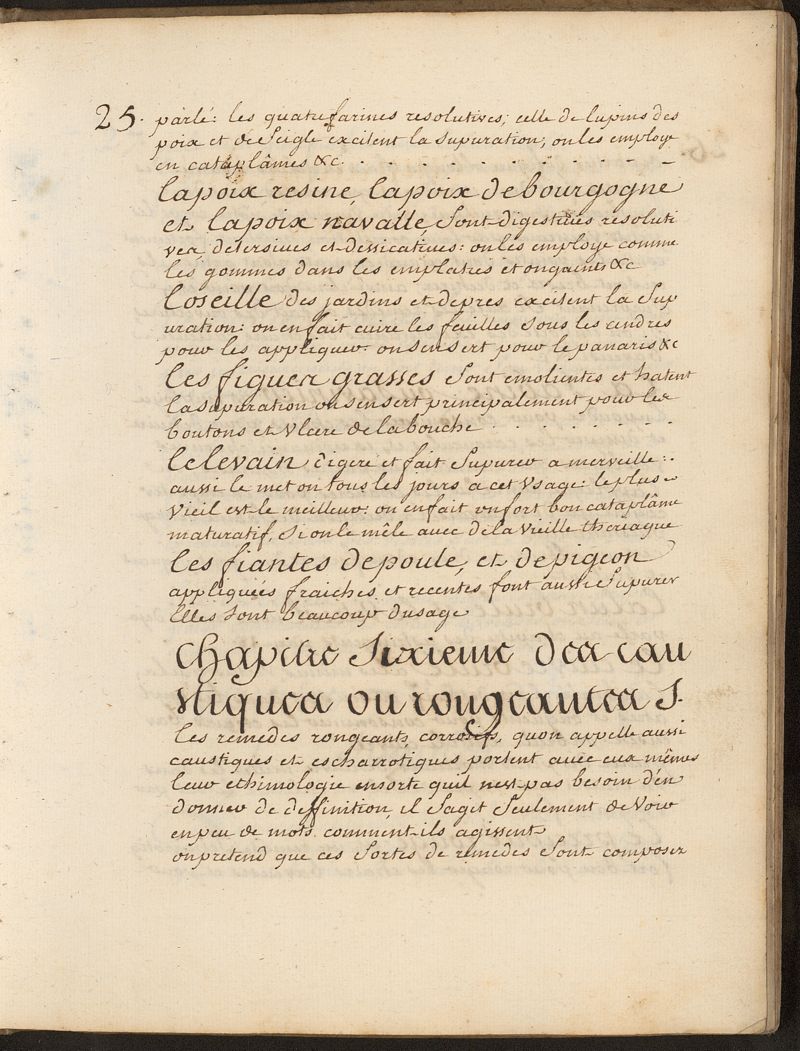 25. parlé: les quatre farines resolutives; celle de lupins des
poix et de Seigle excitent la supuration, on les employe
en cataplâmes &c. . . . . . . . . .
la poix resine, la poix de bourgogne
et la poix navalle, sont digestives resoluti
ves, detersives et dessicatives: on les employe comme
les gommes dans les emplatres et onguents &c
loseille des jardins et deprés excitent la sup
uration: on en fait cuire les feuilles sous les cendres
pour les appliquer on sen sert pour le panaris &c
les figues grasses sont emolientes et hatent
la supuration on sen sert principalement pour les
boutons et Vlcere de la bouche . . . . . . .
le levain digere et fait supurer a merveille:.
aussi le met on tous les jours a cet Vsage: le plus
vieil est le meilleur: on en fait vn fort bon cataplâme
maturatif, si on le mêle avec de la vieille theriaque
les fiantes de poule, et de pigeon
appliquées fraiches et recentes font aussi Supurer
Elles sont beaucoup dusage
Chapitre Sixieme des cau
stiques ou rongeantes S.
les remedes rongeants, corrosifs, quon appelle aussi
caustiques et escharrotiques portent avec eux mêmes
leur ethimologie ensorte quil nest pas besoin d'en
donner de deffinition, il Saget Seulement de Voir
en peu de mots comment ils agissent
on pretend que ces Sortes de remedes Sont composez